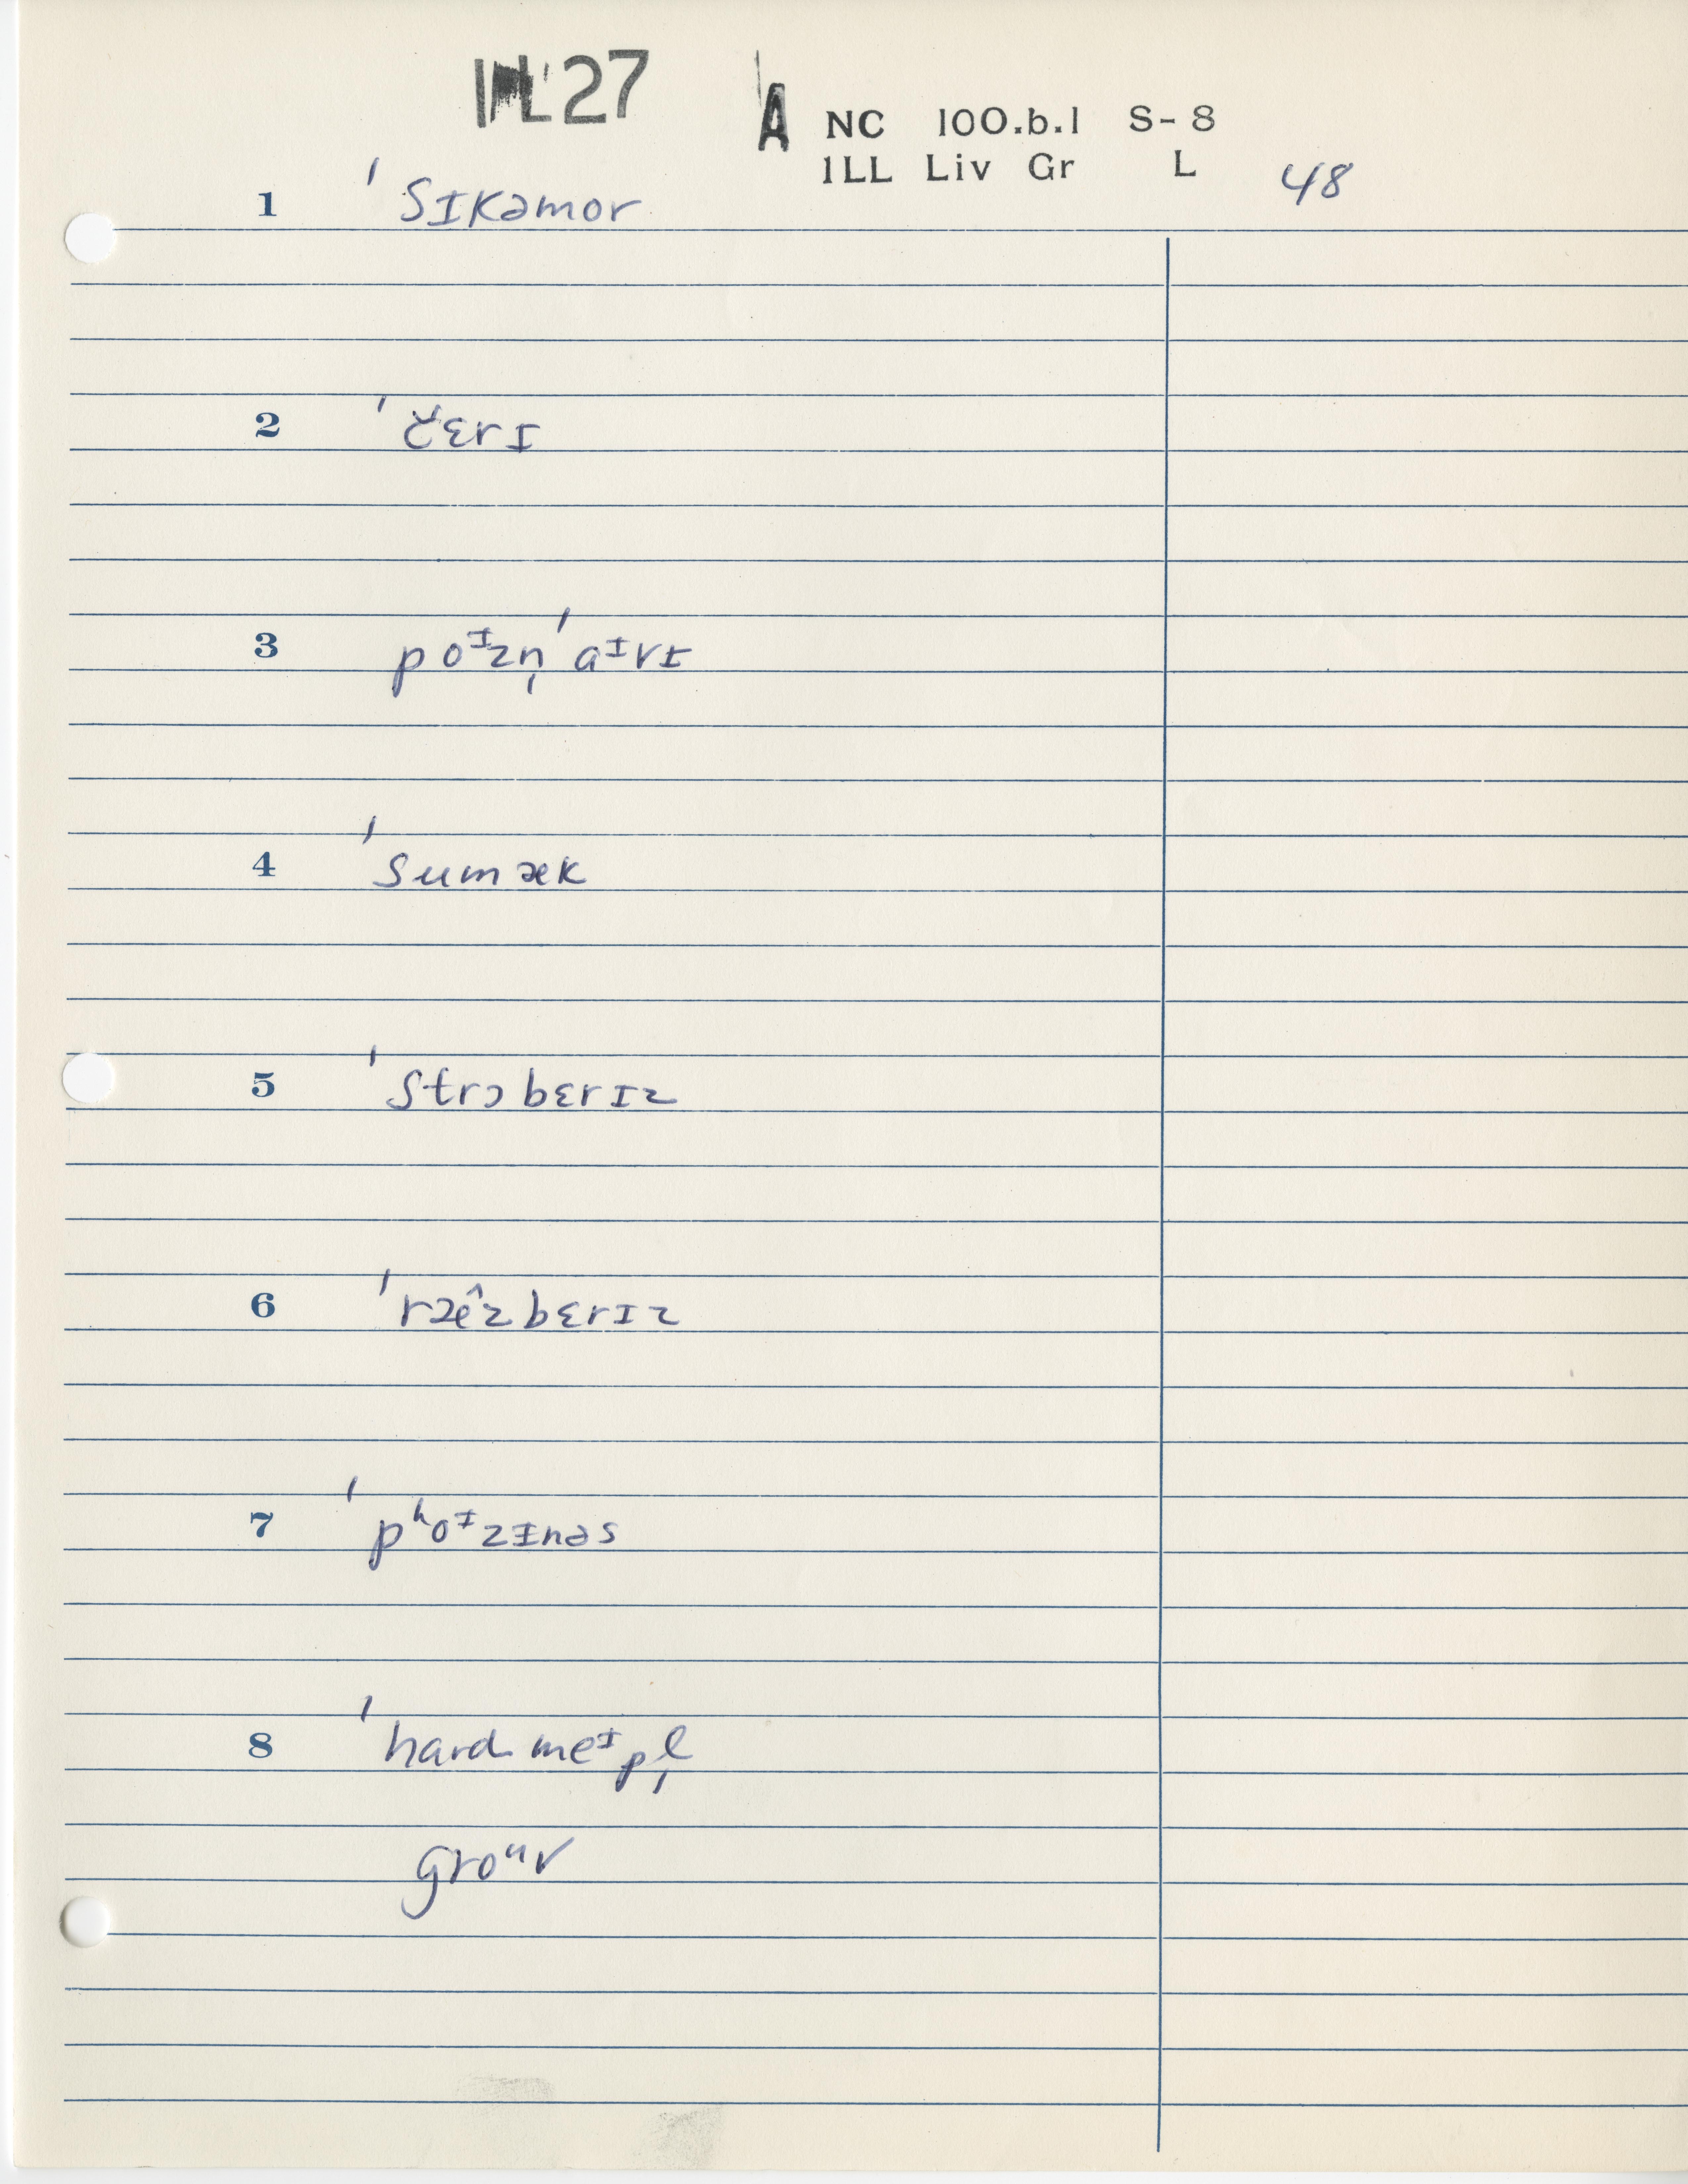 IL27 A NC 100.b.1 S-8
ILL Liv Gr L 48
1 ˈsɪkəmor
2
3 poᶦzn̩ˈaᶦvɪ
4 ˈsumæk
5 ˈstrɔbɛrɪz
6 ˈræ̂zbɛrɪz
7 ˈpʰoᶦzɪnəs
8 ˈhard meᶦpl̩
groᵘv